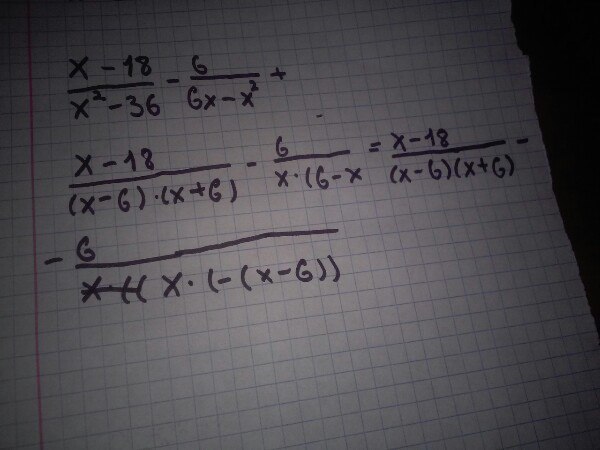 x - 18 / x² - 36 - 6 / 6x - x² +
x - 18 / (x - 6) · (x + 6) - 6 / x · (6 - x = x - 18 / (x - 6)(x + 6) -
- 6 / x · (-(x - 6))